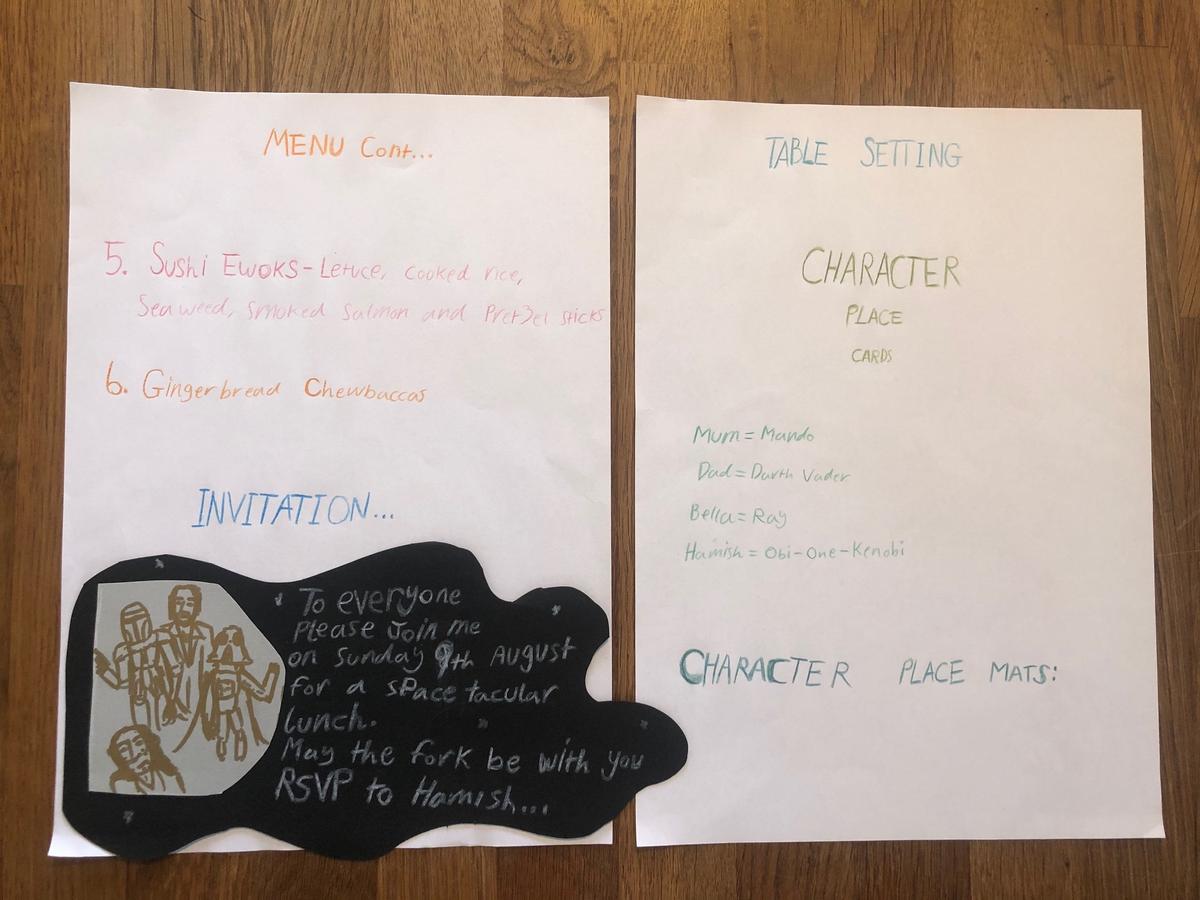 MENU Cont...
5. Sushi Ewoks - Letuce, cooked rice,
Seaweed, smoked salmon and Pretzel sticks
6. Gingerbread Chewbaccas
INVITATION...
To everyone
Please Join me
on Sunday 9th August
for a sPace tacular
lunch.
May the fork be with you
RSVP to Hamish...
TABLE SETTING
CHARACTER
PLACE
CARDS
Mum = Mando
Dad = Darth Vader
Bella = Ray
Hamish = Obi-One-Kenobi
CHARACTER PLACE MATS: